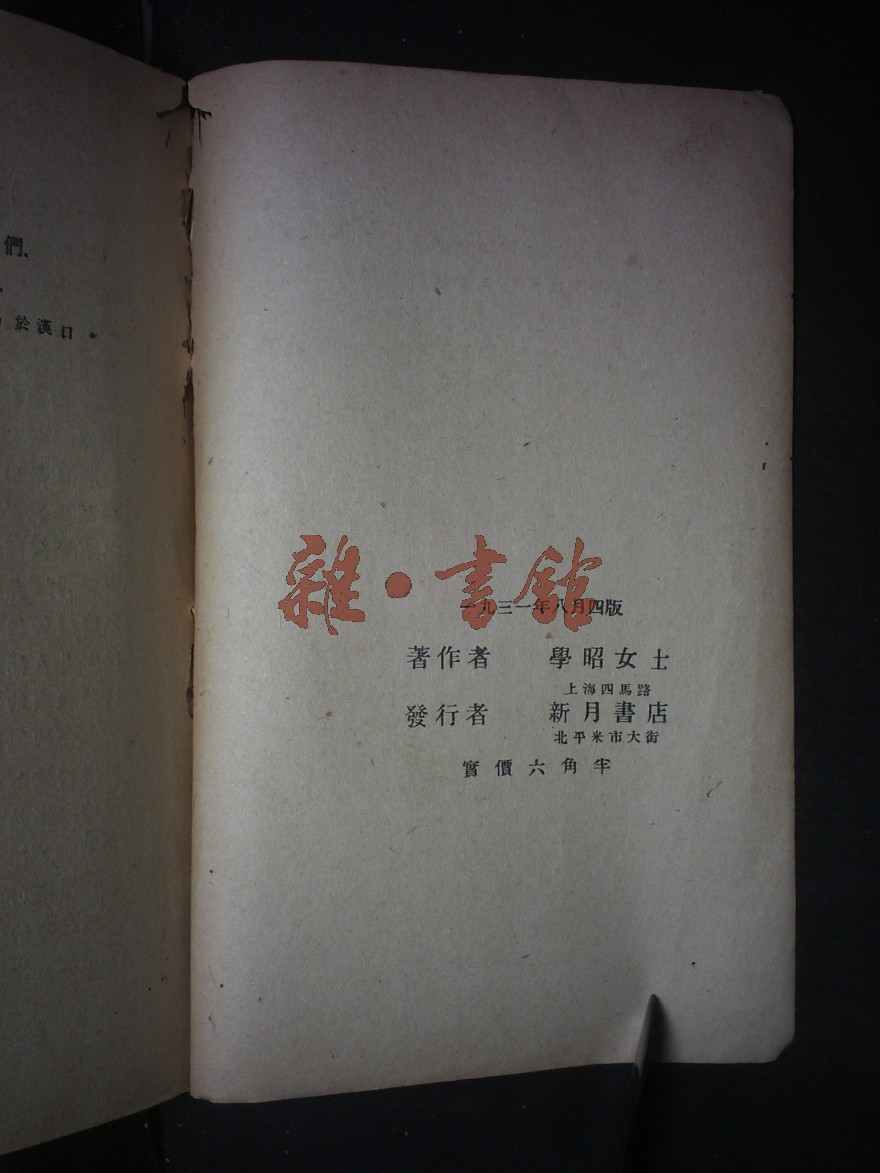 們、
於漢口。
雜·書館
一九三一年八月四版
著作者 學昭女士
上海四馬路
發行者 新月書店
北平米市大街
實價六角半